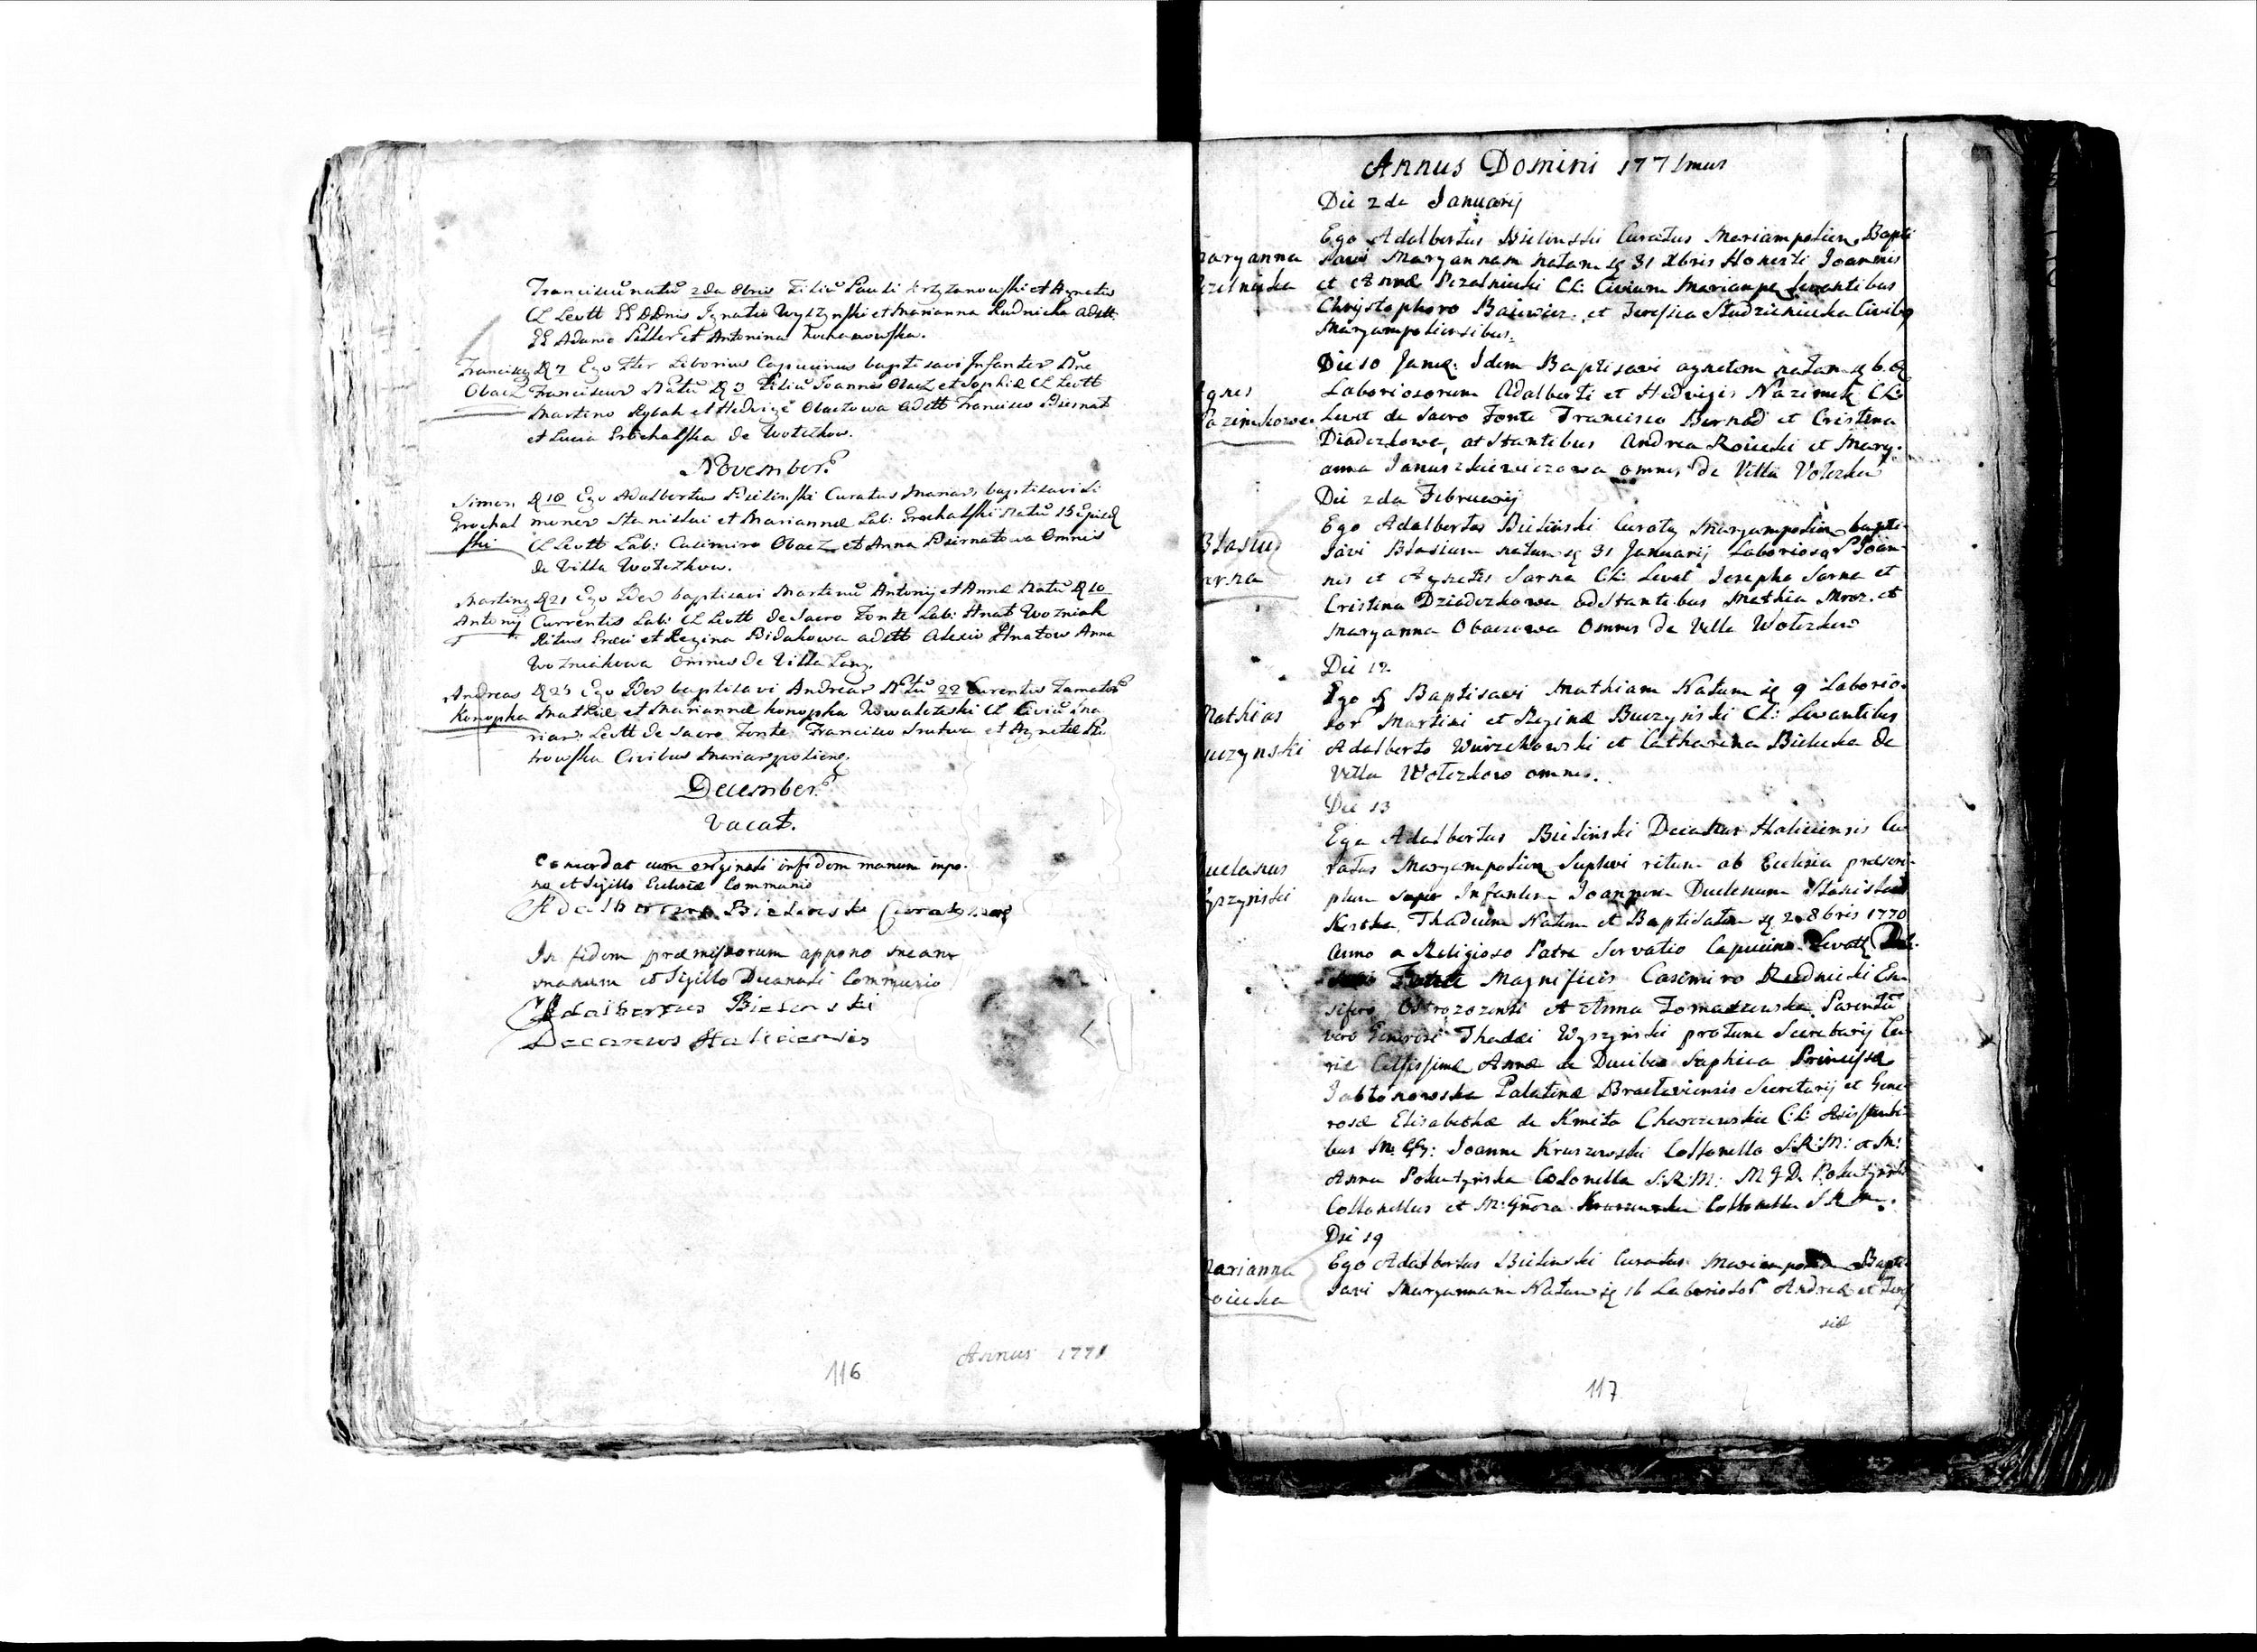 Franciscū natū 2da 8bris Filiū Pauli Krzyżanowski et Agnetis
CL Levtt GG DDnis Ignatio Wyszynski et Marianna Rudnicka adstt.
GG Adamo Piller et Antonina Kochanowska.
Francisc9 D 7 Ego Fter Liborius Capucinus baptisavi Infantem Nne
Obacz Franciscum Natū D 3 Filiū Joannis Obacz et Sophiæ CL Levtt
Martino Rybak et Hedvige Obaczowa adstt Francisco Biernat
et Lucia Grochalska de Wołczkow.
November
Simon D 18 Ego Adalbertus Bielinski Curatus Mariam. baptisavi Si
Grochal monem Stanislai et Mariannæ Lab: Grochalski Natū 15 Ejusd
ski CL Levtt Lab: Casimiro Obacz et Anna Biernatowa Omnes
de Villa Wołczkow.
Martin9 D 21 Ego Idem baptisavi Martinū Antonij et Annæ Natū D 10
Antonij Currentis Lab: CL Levtt de Sacro Fonte Lab: Hnat Wozniak
Ritus Græci et Regina Bidakowa adstt Alexio Hnatow Anna
Wozniakowa Omnes de Villa Lang.
Andreas D 25 Ego Idem baptisavi Andream Natū 22 Currentis Famator
Konopka Mathiæ et Mariannæ Konopka Kowalczski CL Civiū Ma
riam: Levtt de Sacro Fonte Francisco Srutwa et Agnete Pio
trowska Civibus Mariampoliens.
December
Vacat.
Concordat cum originali in fidem manum impo.
no et Sigillo Ecclesiæ Communio
Adalbertus Bielinski Curatus
In fidem præmissorum appono meam
manum et Sigillo Decanali Communio
Adalbertus Bielinski
Decanus Haliciensis
Annus 1771
116
Annus Domini 1771mus
Die 2da Januarij
Ego Adalbertus Bielinski Curatus Mariampolien. Bapti
aryanna savi Maryannam natam 31 Xbris Honesti Joannis
et Annæ Pczolnicki CL: Civium Mariamp Levantibus
Chrystophoro Baiewicz. et Teressia Studzienicka Civib9
Maryampoliensibus.
Die 10 Janu: Idem Baptisavi agnetem natam 6.
gnes Laboriosorum Adalberti et Hedvigis Nazimek CL:
azimkowa Levat de Sacro Fonte Francisco Bernad et Cristina
Diadczkowe, adstantibus Andrea Roiecki et Mary.
anna Januszkiewiczowa omnes de Villa Wolczkow
Die 2da Februarij
Ego Adalbertus Bieliński Curat9 Maryampolien bapti
Błasius savi Błasium natum 31 Januarij Laborioso Joan
arna nis et Agnetis Sarna CL: Levat Josepho Sarna et
Cristina Dziadczkowa adstantibus Mathia Mroz. et
Maryanna Obaczowa Omnes de Villa Wołczkow
Die 12.
Ego Baptisavi Mathiam Natum 9 Laborio.
Mathias sor Martini et Reginæ Buczynski CL: Levantibus
uczynski Adalberto Wierzchowski et Catharina Bielecka de
Villa Wołczkow omnes.
Die 13
Ego Adalbertus Bieliński Decanus Haliciensis Cu
uclanus ratus Maryampolien Suplevi ritum ab Ecclesia præscri
yszynski ptum super Infantem Joannem Duclanum Stanislaum
Kostka Thadeum Natum et Baptisatum 2 8bris 1770
Anno a Religioso Patre Servatio Capucino Levat
Fonte Magnificis Casimiro Rudnicki En
sifero Ostrozozensi et Anna Tomaszewska Parentū
vero Generosi Thadæi Wyszynski protunc Secretarij Cu
riæ Celsissimæ Annæ de Ducibus Saphiea Principsæ
Jabłonowska Palatinæ Braclaviensis Secretarij et Gene
rosæ Elisabethæ de Kmita Charzewskie CL: Asistenti
bus M: GG: Joanne Kruszewski Collonello S:R:M: et M:
Anna Pokutyńska Colonella S:R:M: M G D. Pokutyński
Collonellus et M: Gñosa Kruszewska Collonella S R M.
Die 19
arianna Ego Adalbertus Bielinski Curatus Bapti
oiecka savi Maryannam Natam 16 Laboriosor Andreæ et Tere
siæ
117